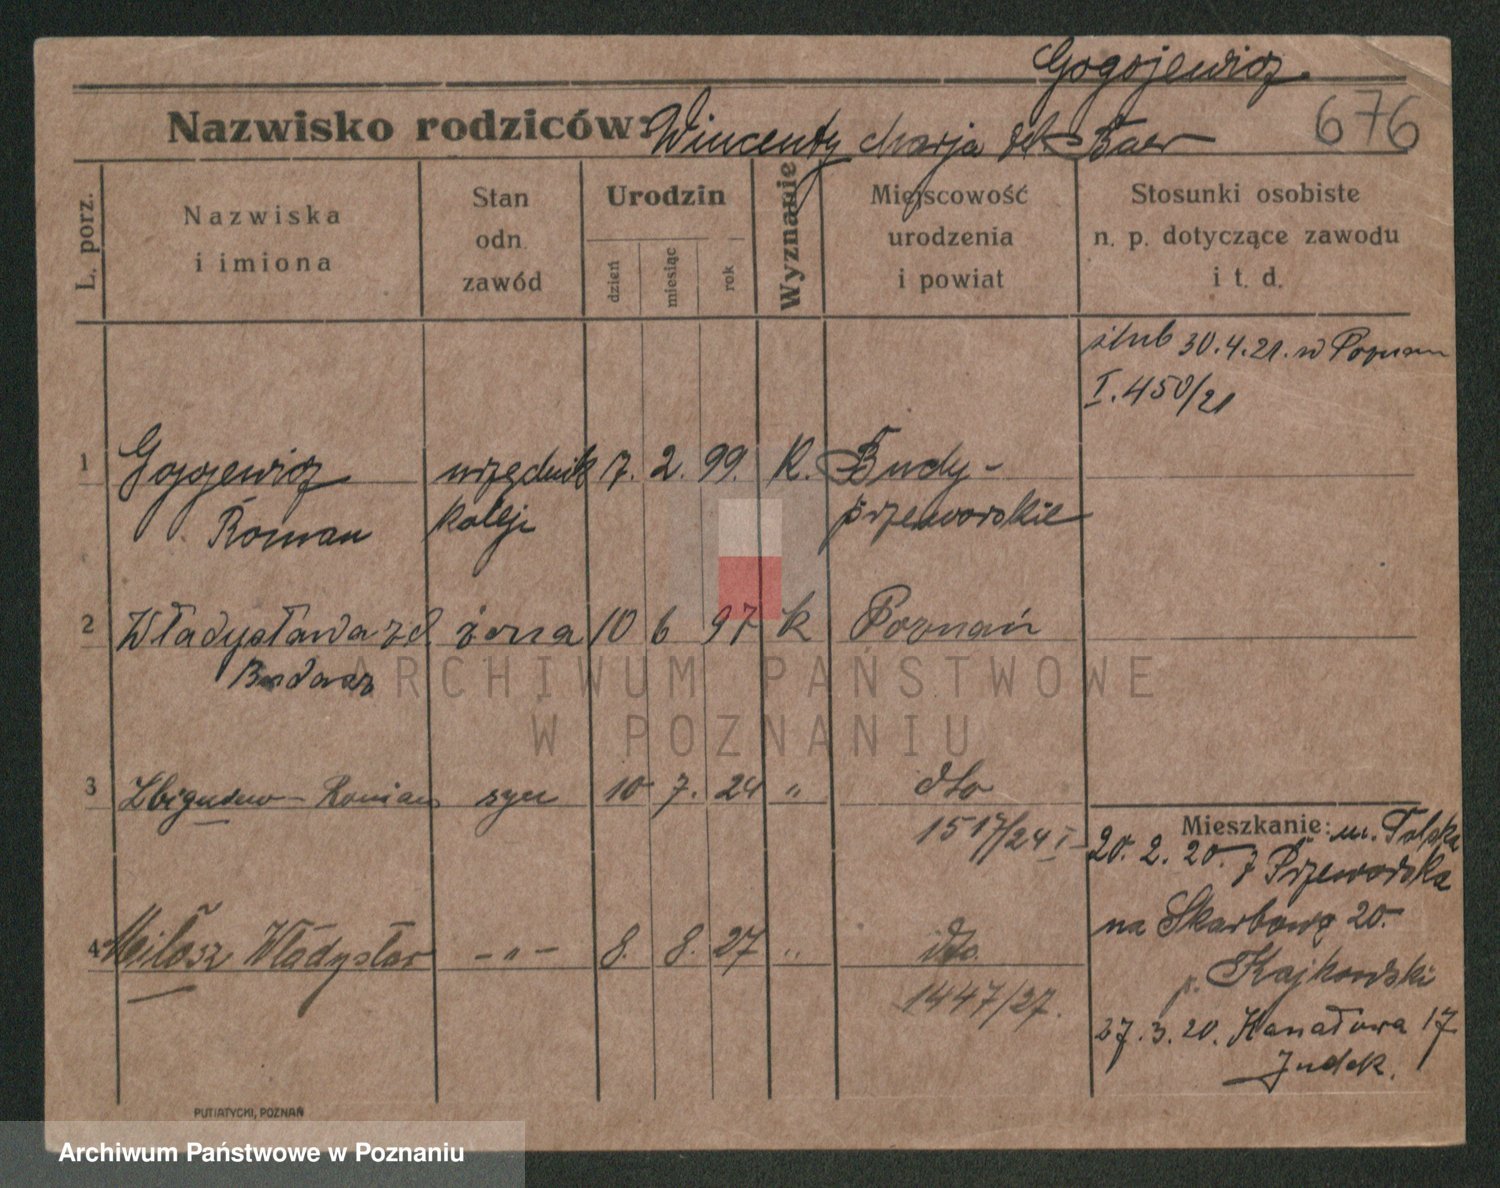 Gogojewicz
Nazwisko rodziców: Wincenty Marja Baer
676
L. porz.
Nazwiska
i imiona
Stan
odn.
zawód
Urodzin
dzień
miesiąc
rok
Wyznanie
Miejscowość
urodzenia
i powiat
Stosunki osobiste
n. p. dotyczące zawodu
i t. d.
ślub 30.4.21. w Poznan
I. 450/21
1 Gogojewicz urzędnik 7. 2. 99. K. Budy-
Roman kolej przeworskie
2 Władysława zd. żona 10 6 97 k Poznań
3 Zbigniew-Roman syn 10 7. 24 " dto
1517/24 I
4 Miłosz Władysław - " - 8. 8. 27 " dto.
1447/27.
Mieszkanie:
20. 2. 20. z Przeworska
na Skarbową 20.
p. Kajkowski
27. 3. 20. Kanałowa 17
Judek.
PUTIATYCKI, POZNAŃ
ARCHIWUM PAŃSTWOWE
W POZNANIU
Archiwum Państwowe w Poznaniu